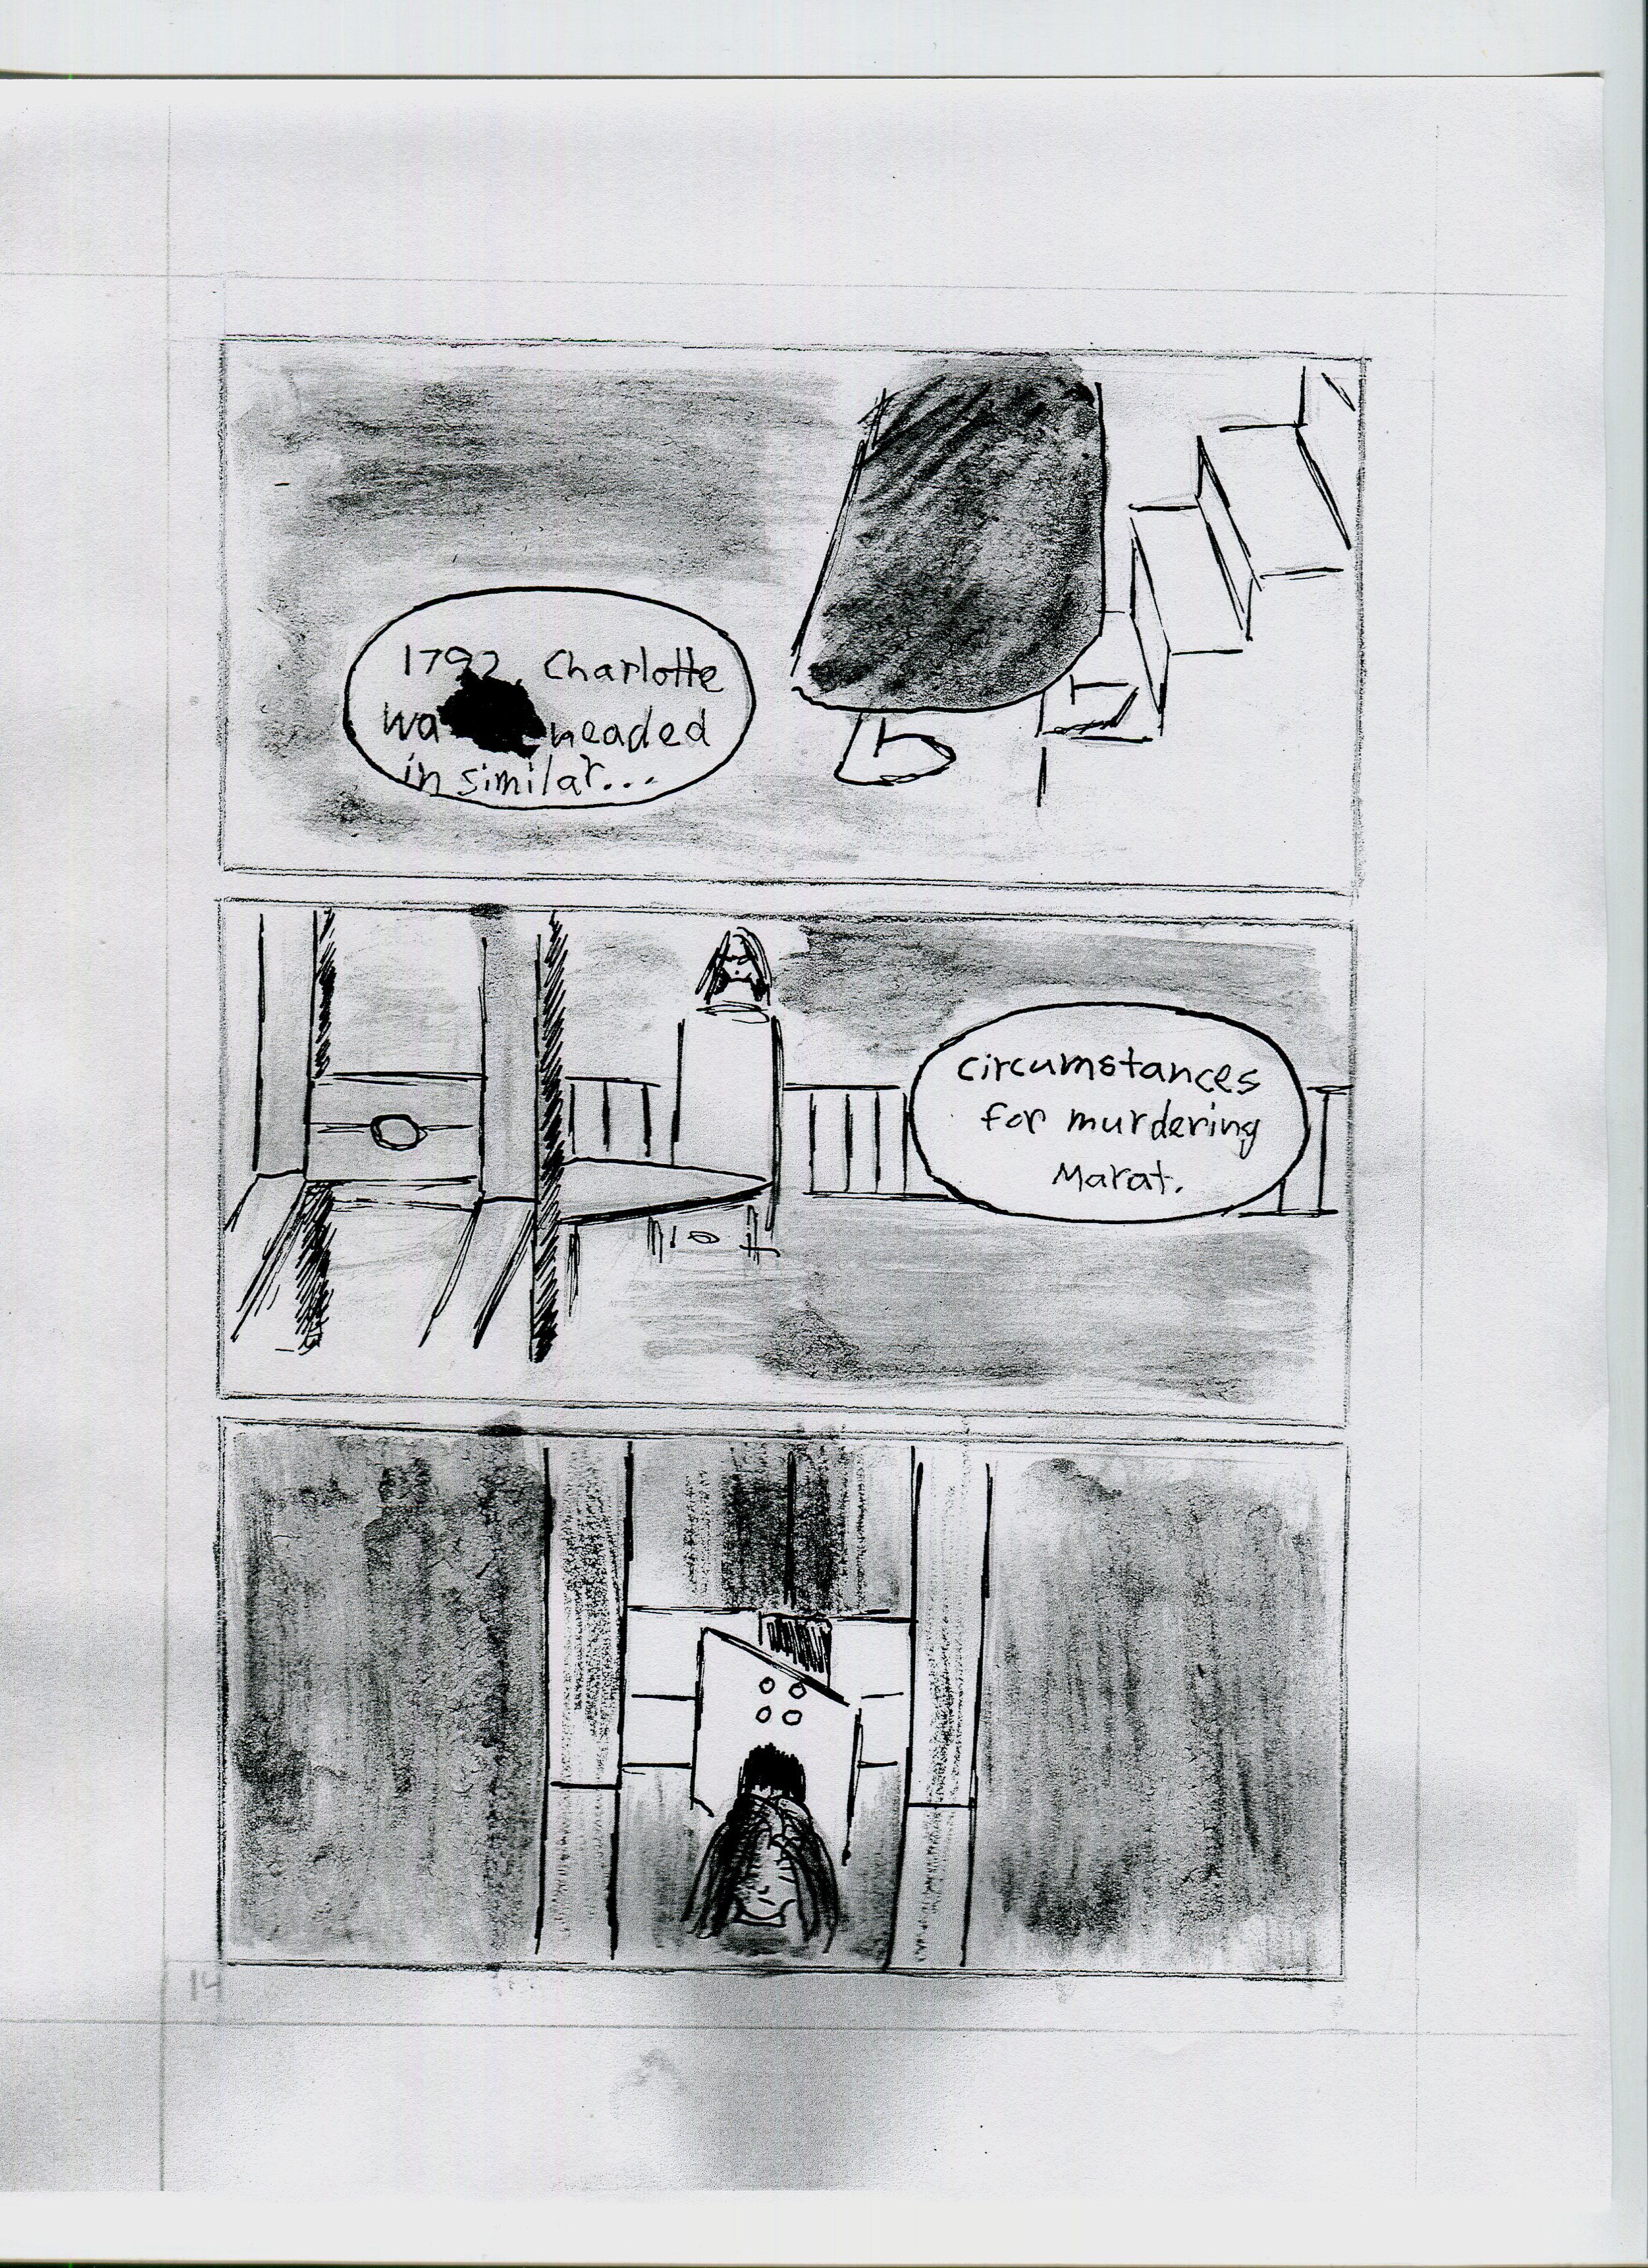 1792, Charlotte
wa headed
in similar...
circumstances
for murdering
Marat.
14